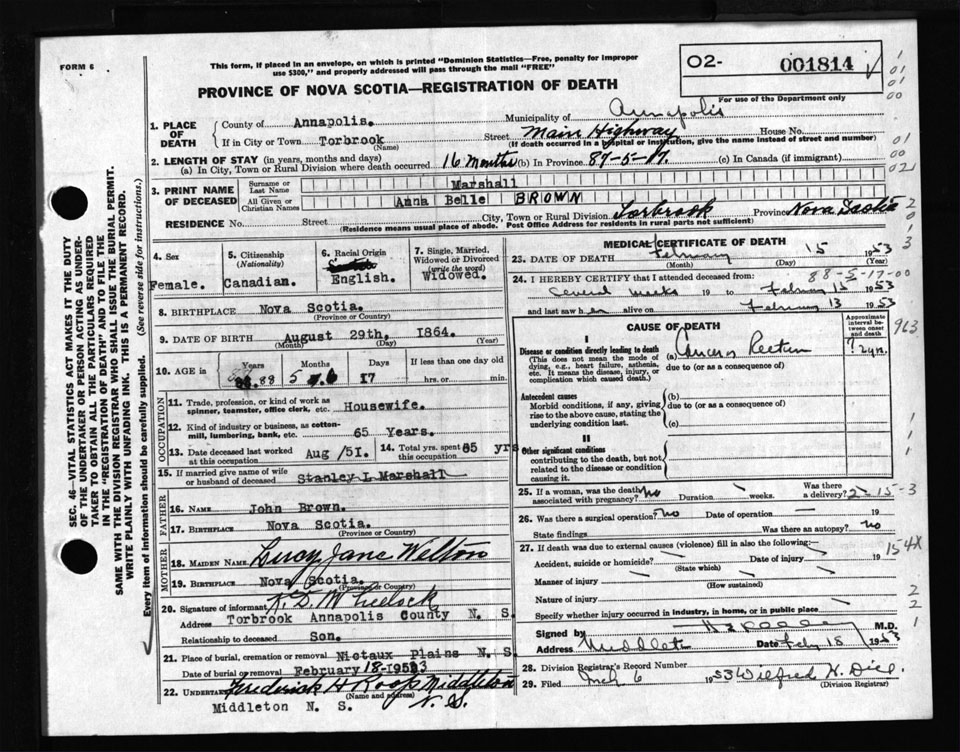 FORM 6
This form, if placed in an envelope, on which is printed "Dominion Statistics—Free, penalty for improper
use $300," and properly addressed will pass through the mail "FREE"
PROVINCE OF NOVA SCOTIA—REGISTRATION OF DEATH
02- 001814
For use of the Department only
1. PLACE OF DEATH
County of Annapolis. Municipality of Annapolis
If in City or Town Torbrook (Name) Street Main Highway House No.
(If death occurred in a hospital or institution, give the name instead of street and number)
2. LENGTH OF STAY (in years, months and days)
(a) In City, Town or Rural Division where death occurred 16 Months (b) In Province 87-5-17. (c) In Canada (if immigrant)
3. PRINT NAME OF DECEASED
Surname or Last Name Marshall
All Given or Christian Names Anna Belle BROWN
RESIDENCE No. Street City, Town or Rural Division Torbrook Province Nova Scotia
(Residence means usual place of abode. Post Office Address for residents in rural parts not sufficient)
4. Sex Female.
5. Citizenship (Nationality) Canadian.
6. Racial Origin English.
7. Single, Married, Widowed or Divorced (write the word) Widowed.
8. BIRTHPLACE Nova Scotia.
(Province or Country)
9. DATE OF BIRTH August 29th, 1864.
(Month) (Day) (Year)
10. AGE in Years Months Days If less than one day old
88 5 17 hrs. or min.
OCCUPATION
11. Trade, profession, or kind of work as
spinner, teamster, office clerk, etc. Housewife.
12. Kind of industry or business, as cotton-
mill, lumbering, bank, etc. 65 Years.
13. Date deceased last worked at this occupation Aug /51. 14. Total yrs. spent in this occupation 65 yrs
15. If married give name of wife
or husband of deceased Stanley L Marshall
FATHER
16. Name John Brown.
17. Birthplace Nova Scotia.
(Province or Country)
MOTHER
18. MAIDEN NAME Jane Welton
19. Birthplace Nova Scotia.
(Province or Country)
20. Signature of informant
Address Torbrook Annapolis County N. S.
Relationship to deceased Son.
21. Place of burial, cremation or removal Nictaux Plains N. S.
Date of burial or removal February 18-1953
22. UNDERTAKER Frederick H Roop Middleton
(Name and address)
Middleton N. S. N.S.
MEDICAL CERTIFICATE OF DEATH
23. DATE OF DEATH February 15 1953
(Month) (Day) (Year)
88-5-17-00
24. I HEREBY CERTIFY that I attended deceased from:
several weeks 19 to February 15 1953
and last saw her alive on February 13 1953
CAUSE OF DEATH
Approximate interval between onset and death
I
Disease or condition directly leading to death
(This does not mean the mode of dying, e.g., heart failure, asthenia, etc. It means the disease, injury, or complication which caused death.)
(a) Rectum ? 2 yrs.
due to (or as a consequence of)
Antecedent causes
Morbid conditions, if any, giving rise to the above cause, stating the underlying condition last.
(b)
due to (or as a consequence of)
(c)
II
Other significant conditions
contributing to the death, but not related to the disease or condition causing it.
25. If a woman, was the death associated with pregnancy? no Duration weeks. Was there a delivery?
2-15-3
26. Was there a surgical operation? no Date of operation — 19
State findings Was there an autopsy? no
27. If death was due to external causes (violence) fill in also the following:—
Accident, suicide or homicide? Date of injury 19
(State which)
Manner of injury
(How sustained)
Nature of injury
Specify whether injury occurred in industry, in home, or in public place
Signed by M.D.
Address Middleton Date Feb 18 1953
28. Division Registrar's Record Number
29. Filed 6 1953 Wilfred H.
(Division Registrar)
963
154X
SEC. 46—VITAL STATISTICS ACT MAKES IT THE DUTY
OF THE UNDERTAKER OR PERSON ACTING AS UNDER-
TAKER TO OBTAIN ALL THE PARTICULARS REQUIRED
IN THE "REGISTRATION OF DEATH" AND TO FILE THE
SAME WITH THE DIVISION REGISTRAR WHO SHALL ISSUE THE BURIAL PERMIT.
WRITE PLAINLY WITH UNFADING INK. THIS IS A PERMANENT RECORD.
Every item of information should be carefully supplied. (See reverse side for instructions.)